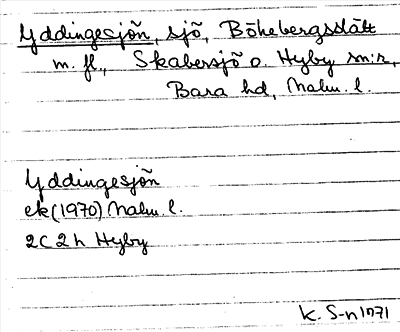 Yddingesjön, sjö, Bökebergsslätt
m. fl., Skabersjö o. Hyby sn:r,
Bara hd, Malm. l.
Yddingesjön
ek(1970) Malm. l.
2C 2h Hyby
K. S-n 1971